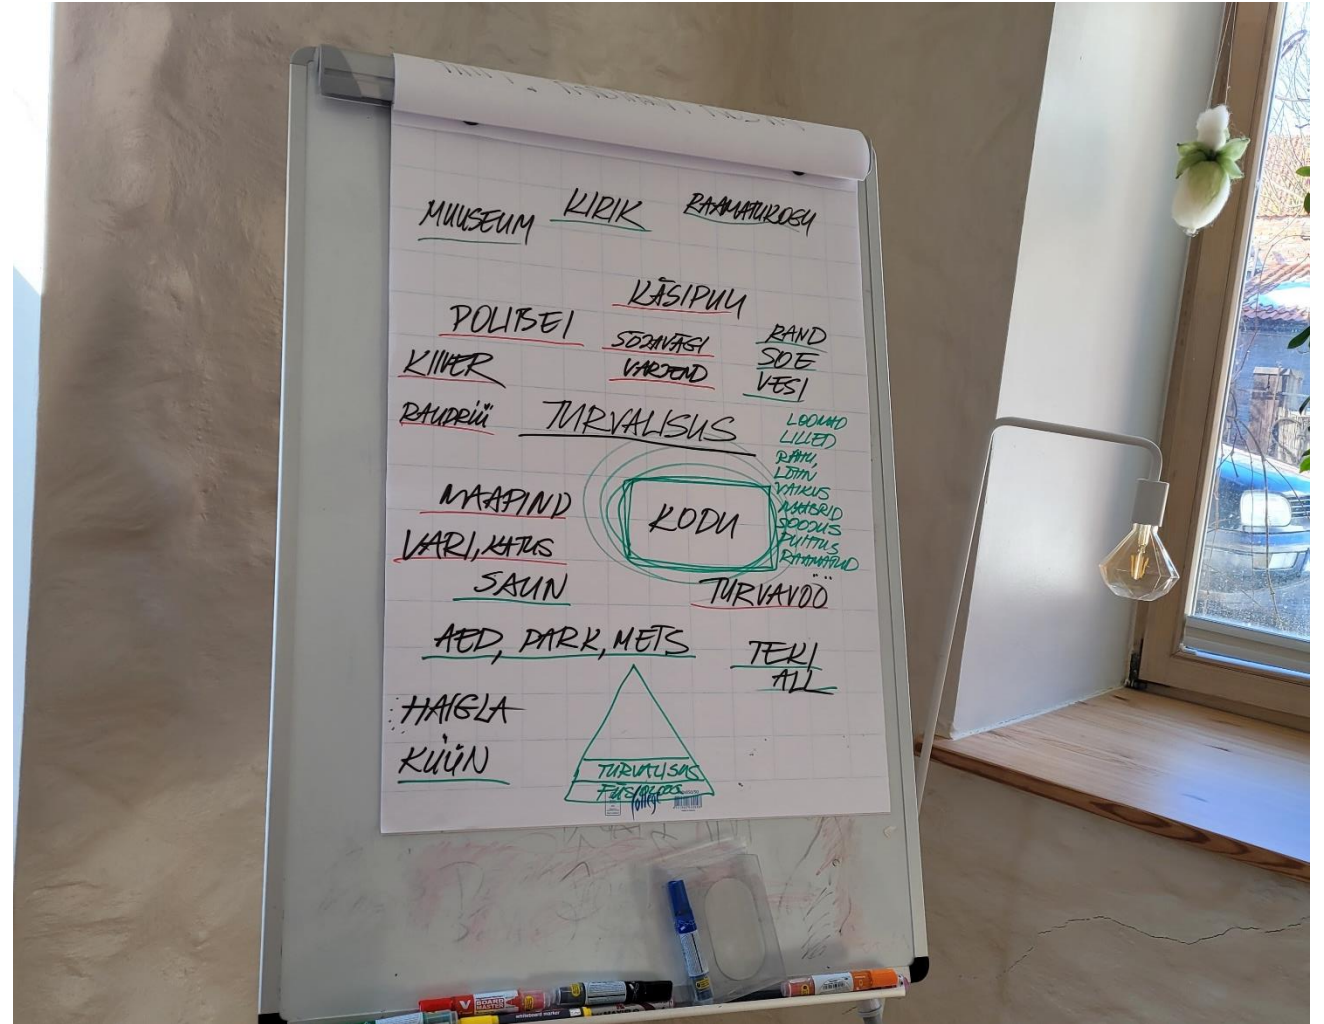 MUUSEUM KIRIK RAAMATUKOGU
KÄSIPUU
POLITSEI
SÕJAVÄGI
VARJEND
RAND
SOE
VESI
KIIVER
RAUDRÜÜ
TURVALISUS
LOOMAD
LILLED
RAHU,
LÕHN
VAIKUS
NAABRID
SOOJUS
PUHTUS
RAAMATUD
KODU
MAAPIND
VARI, KATUS
SAUN
TURVAVÖÖ
AED, PARK, METS
TEKI
ALL
HAIGLA
KÜÜN
TURVALISUS
College
V BOARD MASTER
whiteboard marker